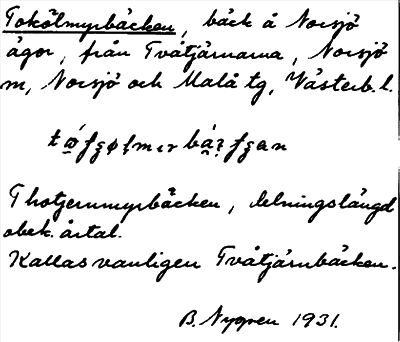 Tokölmyrbäcken, bäck å Norsjö
ägor, från Tvåtjärnarna, Norsjö
sn, Norsjö och Malå tg, Västerb. l.
Thotjernmyrbäcken, delningslängd
obek. årtal.
Kallas vanligen Tvåtjärnbäcken.
B. Nygren 1931.